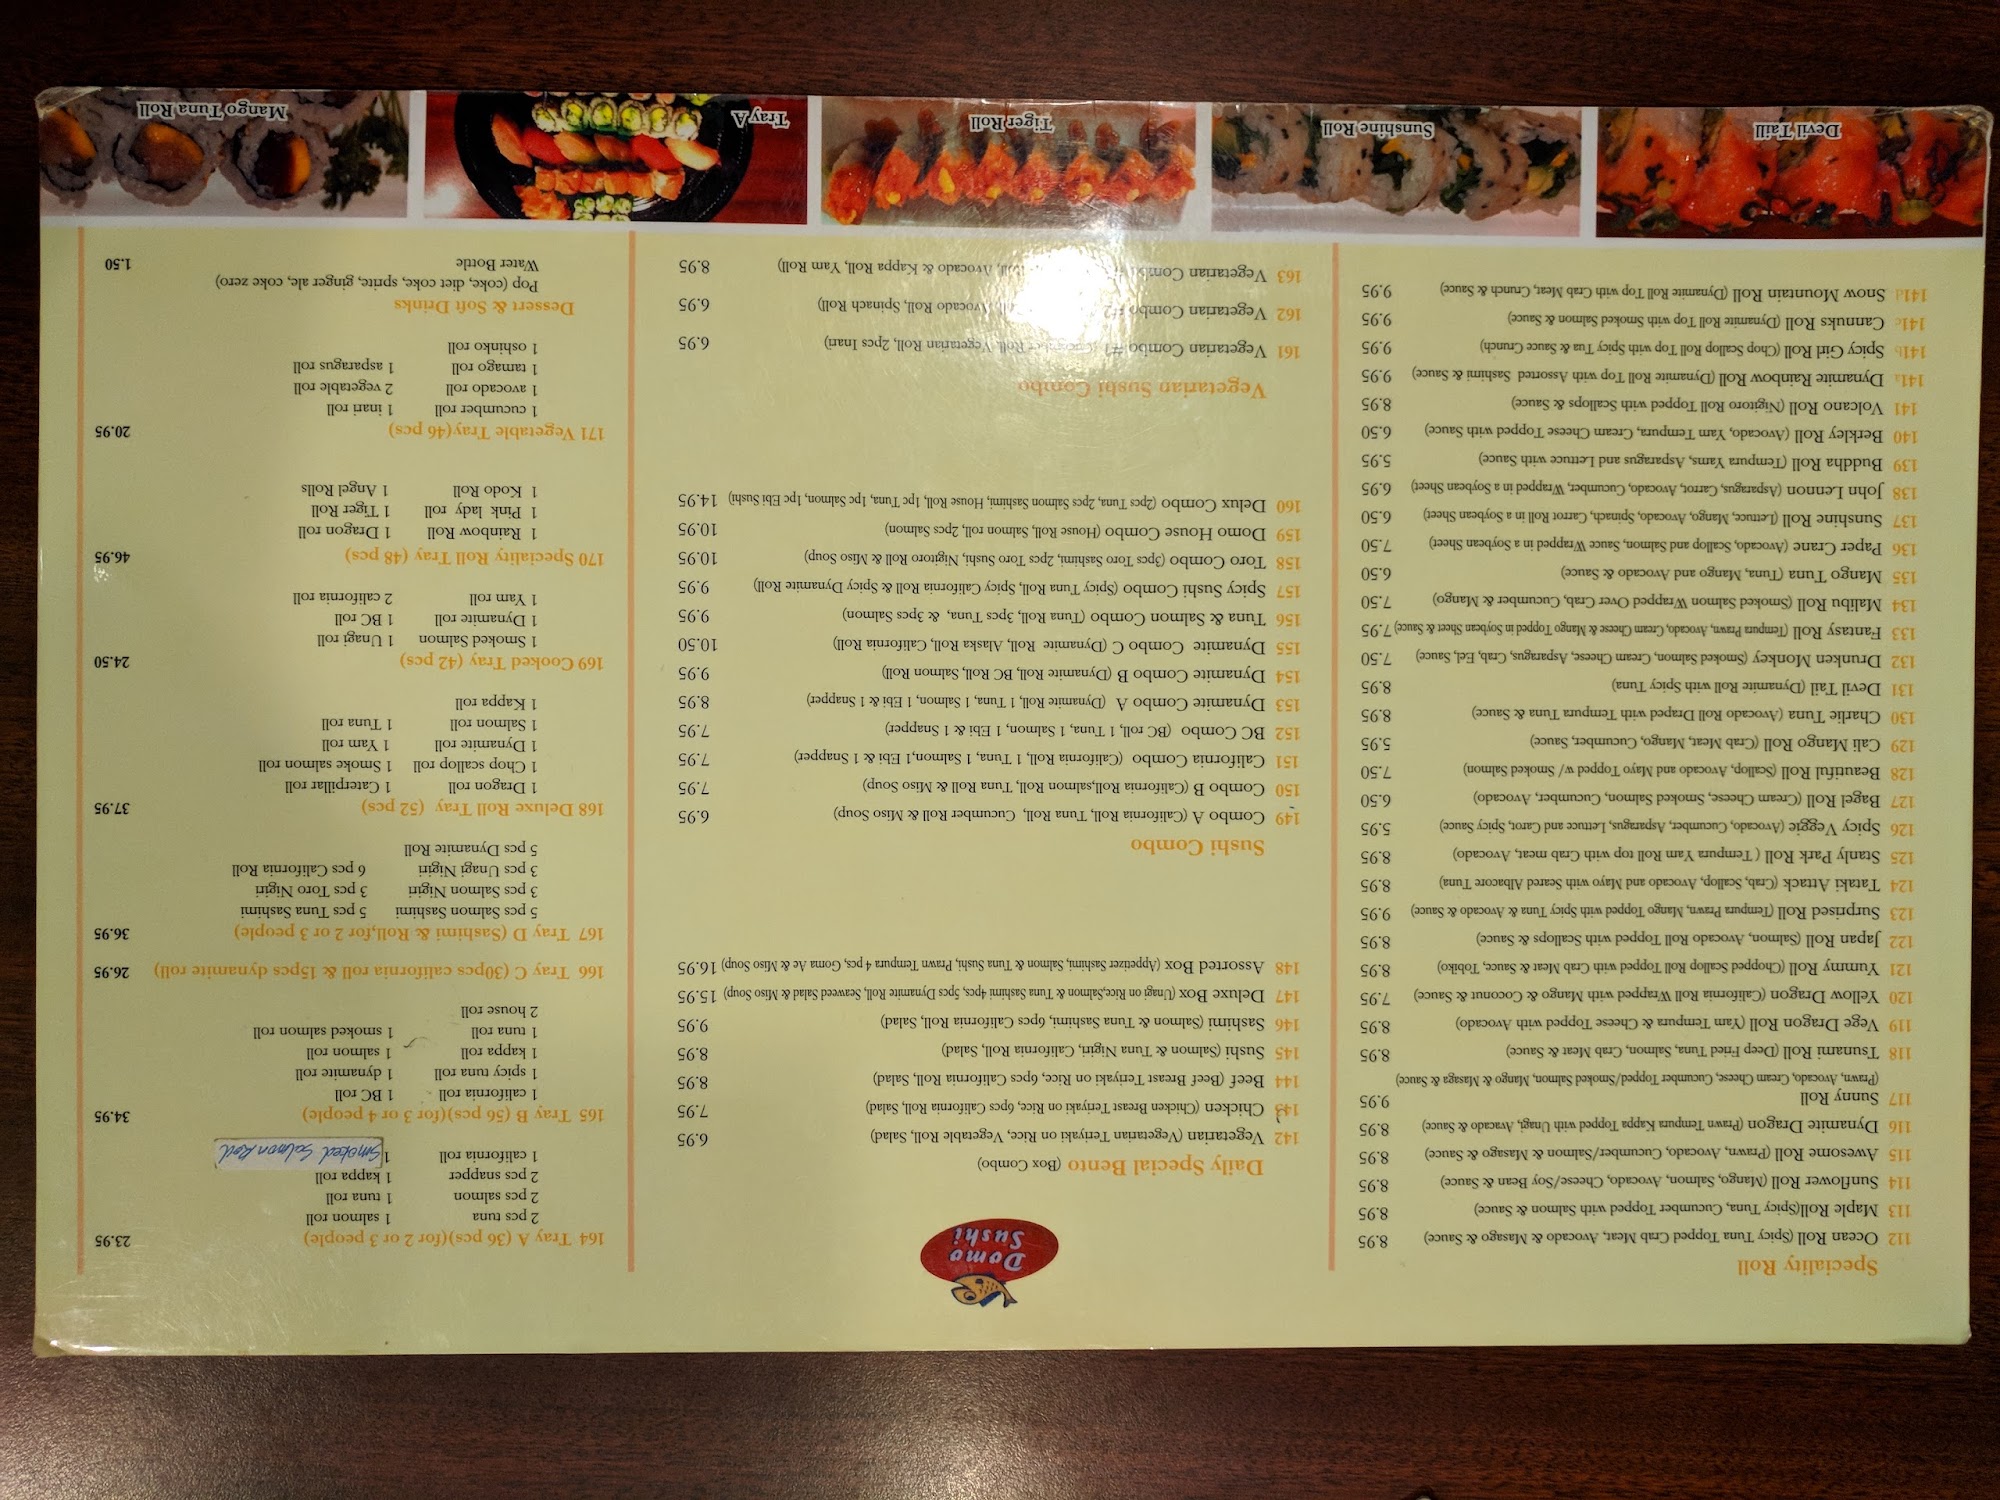 Speciality Roll
112 Ocean Roll (Spicy Tuna Topped Crab Meat, Avocado & Masago & Sauce) 8.95
113 Maple Roll(Spicy Tuna, Cucumber Topped with Salmon & Sauce) 8.95
114 Sunflower Roll (Mango, Salmon, Avocado, Cheese/Soy Bean & Sauce) 8.95
115 Awesome Roll (Prawn, Avocado, Cucumber/Salmon & Masago & Sauce) 8.95
116 Dynamite Dragon (Prawn Tempura Kappa Topped with Unagi, Avacado & Sauce) 8.95
117 Sunny Roll 9.95
(Prawn, Avocado, Cream Cheese, Cucumber Topped/Smoked Salmon, Mango & Masaga & Sauce)
118 Tsunami Roll (Deep Fried Tuna, Salmon, Crab Meat & Sauce) 8.95
119 Vege Dragon Roll (Yam Tempura & Cheese Topped with Avocado) 8.95
120 Yellow Dragon (California Roll Wrapped with Mango & Coconut & Sauce) 7.95
121 Yummy Roll (Chopped Scallop Roll Topped with Crab Meat & Sauce, Tobiko) 8.95
122 Japan Roll (Salmon, Avocado Roll Topped with Scallops & Sauce) 8.95
123 Surprised Roll (Tempura Prawn, Mango Topped with Spicy Tuna & Avocado & Sauce) 9.95
124 Tataki Attack (Crab, Scallop, Avocado and Mayo with Seared Albacore Tuna) 8.95
125 Stanly Park Roll ( Tempura Yam Roll top with Crab meat, Avocado) 8.95
126 Spicy Veggie (Avocado, Cucumber, Asparagus, Lettuce and Carot, Spicy Sauce) 5.95
127 Bagel Roll (Cream Cheese, Smoked Salmon, Cucumber, Avocado) 6.50
128 Beautiful Roll (Scallop, Avocado and Mayo Topped w/ Smoked Salmon) 7.50
129 Cali Mango Roll (Crab Meat, Mango, Cucumber, Sauce) 5.95
130 Charlie Tuna (Avocado Roll Draped with Tempura Tuna & Sauce) 8.95
131 Devil Tail (Dynamite Roll with Spicy Tuna) 8.95
132 Drunken Monkey (Smoked Salmon, Cream Cheese, Asparagus, Crab, Eel, Sauce) 7.50
133 Fantasy Roll (Tempura Prawn, Avocado, Cream Cheese & Mango Topped in Soybean Sheet & Sauce) 7.95
134 Malibu Roll (Smoked Salmon Wrapped Over Crab, Cucumber & Mango) 7.50
135 Mango Tuna (Tuna, Mango and Avocado & Sauce) 6.50
136 Paper Crane (Avocado, Scallop and Salmon, Sauce Wrapped in a Soybean Sheet) 7.50
137 Sunshine Roll (Lettuce, Mango, Avocado, Spinach, Carrot Roll in a Soybean Sheet) 6.50
138 John Lennon (Asparagus, Carrot, Avocado, Cucumber, Wrapped in a Soybean Sheet) 6.95
139 Buddha Roll (Tempura Yams, Asparagus and Lettuce with Sauce) 5.95
140 Berkley Roll (Avocado, Yam Tempura, Cream Cheese Topped with Sauce) 6.50
141 Volcano Roll (Nigitoro Roll Topped with Scallops & Sauce) 8.95
141a Dynamite Rainbow Roll (Dynamite Roll Top with Assorted Sashimi & Sauce) 9.95
141b Spicy Girl Roll (Chop Scallop Roll Top with Spicy Tua & Sauce Crunch) 9.95
141c Cannuks Roll (Dynamite Roll Top with Smoked Salmon & Sauce) 9.95
141d Snow Mountain Roll (Dynamite Roll Top with Crab Meat, Crunch & Sauce) 9.95
Domo
Sushi
Daily Special Bento (Box Combo)
142 Vegetarian (Vegetarian Teriyaki on Rice, Vegetable Roll, Salad) 6.95
143 Chicken (Chicken Breast Teriyaki on Rice, 6pcs California Roll, Salad) 7.95
144 Beef (Beef Breast Teriyaki on Rice, 6pcs California Roll, Salad) 8.95
145 Sushi (Salmon & Tuna Nigiri, California Roll, Salad) 8.95
146 Sashimi (Salmon & Tuna Sashimi, 6pcs California Roll, Salad) 9.95
147 Deluxe Box (Unagi on Rice,Salmon & Tuna Sashimi 4pcs, 5pcs Dynamite Roll, Seaweed Salad & Miso Soup) 15.95
148 Assorted Box (Appetizer Sashimi, Salmon & Tuna Sushi, Prawn Tempura 4 pcs, Goma Ae & Miso Soup) 16.95
Sushi Combo
149 Combo A (California Roll, Tuna Roll, Cucumber Roll & Miso Soup) 6.95
150 Combo B (California Roll,salmon Roll, Tuna Roll & Miso Soup) 7.95
151 California Combo (California Roll, 1 Tuna, 1 Salmon,1 Ebi & 1 Snapper) 7.95
152 BC Combo (BC roll, 1 Tuna, 1 Salmon, 1 Ebi & 1 Snapper) 7.95
153 Dynamite Combo A (Dynamite Roll, 1 Tuna, 1 Salmon, 1 Ebi & 1 Snapper) 8.95
154 Dynamite Combo B (Dynamite Roll, BC Roll, Salmon Roll) 9.95
155 Dynamite Combo C (Dynamite Roll, Alaska Roll, California Roll) 10.50
156 Tuna & Salmon Combo (Tuna Roll, 3pcs Tuna, & 3pcs Salmon) 9.95
157 Spicy Sushi Combo (Spicy Tuna Roll, Spicy California Roll & Spicy Dynamite Roll) 9.95
158 Toro Combo (3pcs Toro Sashimi, 2pcs Toro Sushi, Nigitoro Roll & Miso Soup) 10.95
159 Domo House Combo (House Roll, Salmon roll, 2pcs Salmon) 10.95
160 Delux Combo (2pcs Tuna, 2pcs Salmon Sashimi, House Roll, 1pc Tuna, 1pc Salmon, 1pc Ebi Sushi) 14.95
Vegetarian Sushi Combo
161 Vegetarian Combo #1 (Cucumber Roll, Vegetarian Roll, 2pcs Inari) 6.95
162 Vegetarian Combo #2 Roll, Avocado Roll, Spinach Roll) 6.95
163 Vegetarian Combo Roll, Avocado & Kappa Roll, Yam Roll) 8.95
164 Tray A (36 pcs)(for 2 or 3 people) 23.95
2 pcs tuna 1 salmon roll
2 pcs salmon 1 tuna roll
2 pcs snapper 1 kappa roll
1 california roll 1 Smoked Salmon Roll
165 Tray B (56 pcs)(for 3 or 4 people) 34.95
1 california roll 1 BC roll
1 spicy tuna roll 1 dynamite roll
1 kappa roll 1 salmon roll
1 tuna roll 1 smoked salmon roll
2 house roll
166 Tray C (30pcs california roll & 15pcs dynamite roll) 26.95
167 Tray D (Sashimi & Roll,for 2 or 3 people) 36.95
5 pcs Salmon Sashimi 5 pcs Tuna Sashimi
3 pcs Salmon Nigiri 3 pcs Toro Nigiri
3 pcs Unagi Nigiri 6 pcs California Roll
5 pcs Dynamite Roll
168 Deluxe Roll Tray (52 pcs) 37.95
1 Dragon roll 1 Caterpillar roll
1 Chop scallop roll 1 Smoke salmon roll
1 Dynamite roll 1 Yam roll
1 Salmon roll 1 Tuna roll
1 Kappa roll
169 Cooked Tray (42 pcs) 24.50
1 Smoked Salmon 1 Unagi roll
1 Dynamite roll 1 BC roll
1 Yam roll 2 california roll
170 Speciality Roll Tray (48 pcs) 46.95
1 Rainbow Roll 1 Dragon roll
1 Pink lady roll 1 Tiger Roll
1 Kodo Roll 1 Angel Rolls
171 Vegetable Tray(46 pcs) 20.95
1 cucumber roll 1 inari roll
1 avocado roll 2 vegetable roll
1 tamago roll 1 asparagus roll
1 oshinko roll
Dessert & Soft Drinks
Pop (coke, diet coke, sprite, ginger ale, coke zero)
Water Bottle 1.50
Devil Taill
Sunshine Roll
Tiger Roll
Tray A
Mango Tuna Roll